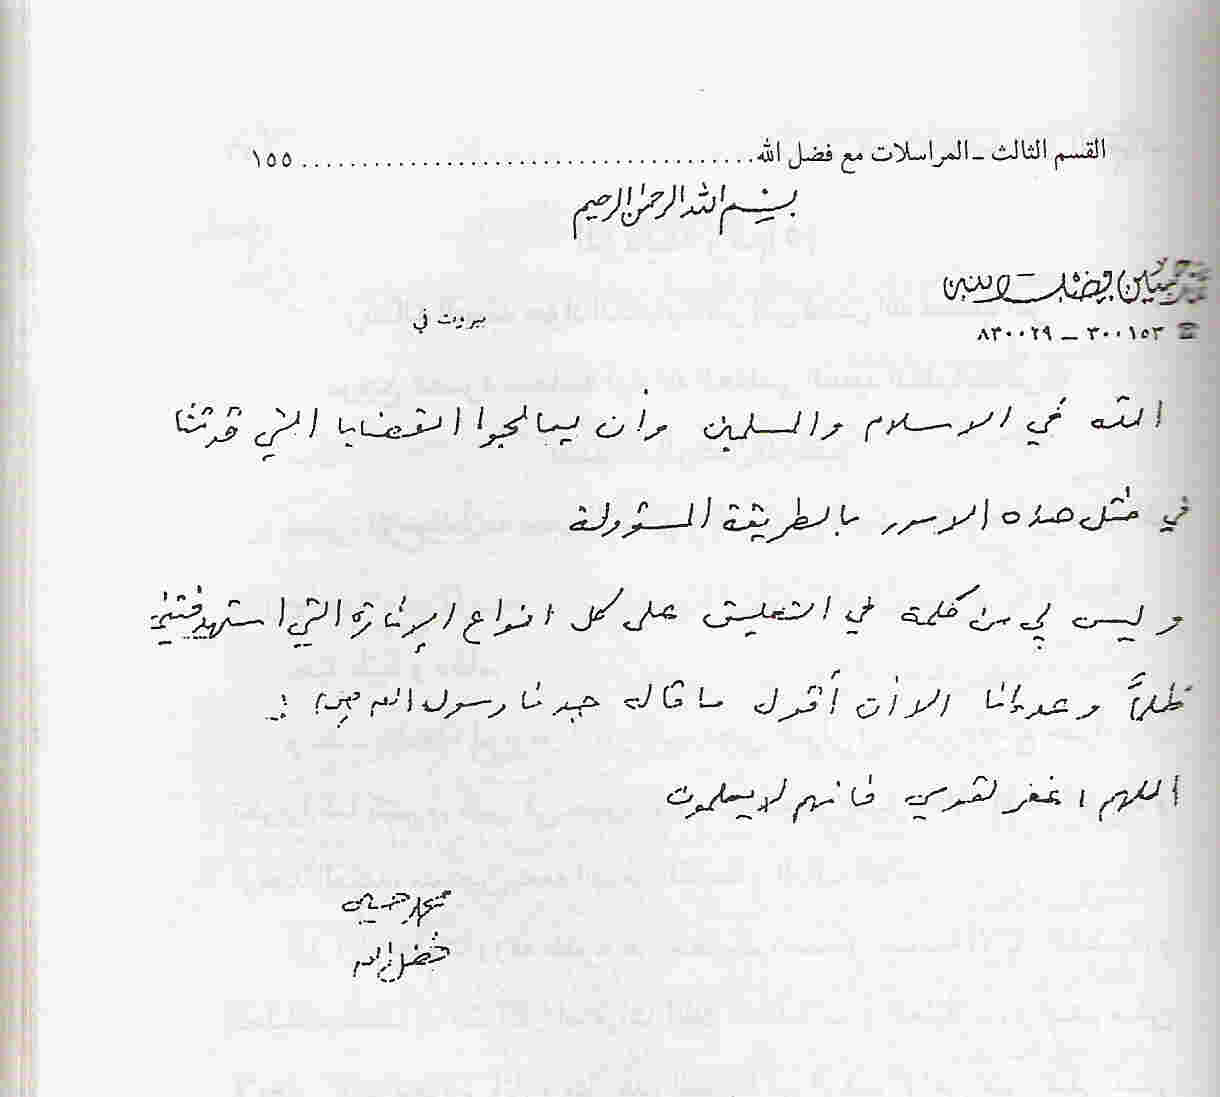 القسم الثالث ـ المراسلات مع فضل الله ........................................ ١٥٥
بسم الله الرحمن الرحيم
حسين فضل الله
بيروت في
٣٠٠١٥٣ ــ ٨٣٠٠٢٩
الله في الاسلام والمسلمين وأن يعالجوا القضايا التي
في مثل هذه الامور بالطريقة المسؤولة
وليس لي من كلمة في التعليق على كل انواع الإثارة التي استهدفتني
ظلماً وعدوانا الا أن أقول ما قاله جدنا رسول الله (ص) :
اللهم اغفر لقومي فانهم لا يعلمون
محمد حسين
فضل الله